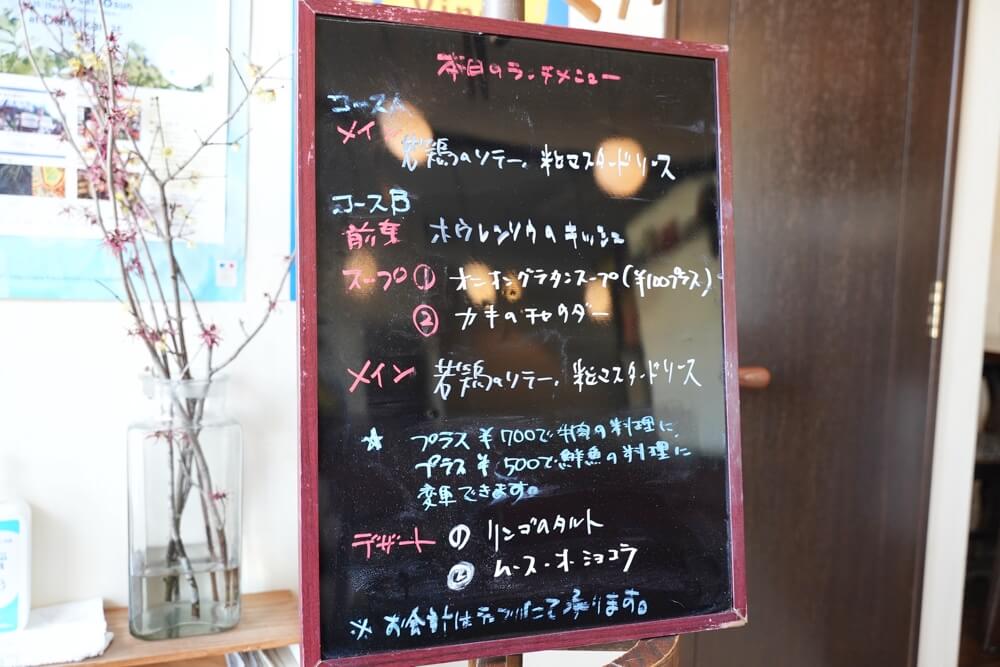 本日のランチメニュー
コースA
メイン
若鶏のソテー、粒マスタードソース
コースB
前菜 ホウレンソウのキッシュ
スープ ① オニオングラタンスープ(¥100プラス)
② カキのチャウダー
メイン 若鶏のソテー、粒マスタードソース
☆ プラス¥700で牛肉の料理に
プラス¥500で鮮魚の料理に
変更できます。
デザート ① リンゴのタルト
② ムース・オ・ショコラ
※お会計はテーブルにて承ります。